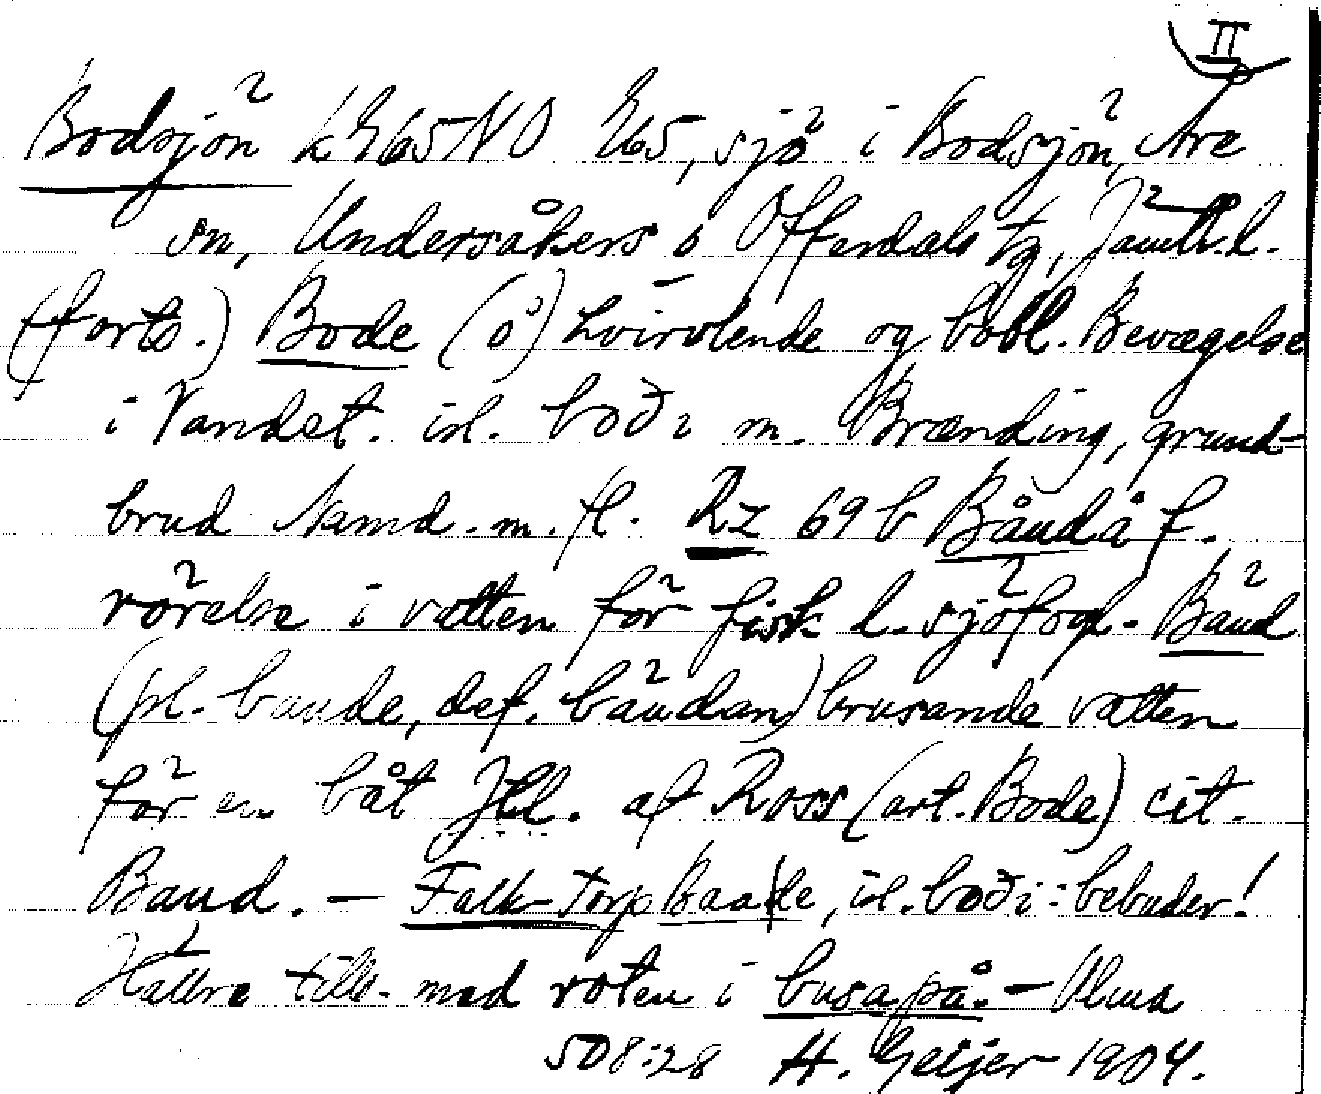 II
Bodsjön k 765 NO 765, sjö i Bodsjön, Åre
sn, Undersåkers o Offerdals tg, Jämtl. l.
(forts.) Bode (o) hvirvlende og bobl. Bevægelse
i Vandet. isl. boði m. Brænding, grund-
brud Namd. m. fl. Rz 69 b Båudå f.
rörelse i vatten för fisk l. sjöfogl. Bäud
(pl. baude, def. bäudan) brusande vatten
för en båt Jtl. af Ross (art. Bode) cit.
Baud. – Falk-Torp baade, isl. boði: bebuder!
Hällre till. med roten i busa på. – Ulma
508:28 H. Geijer 1904.